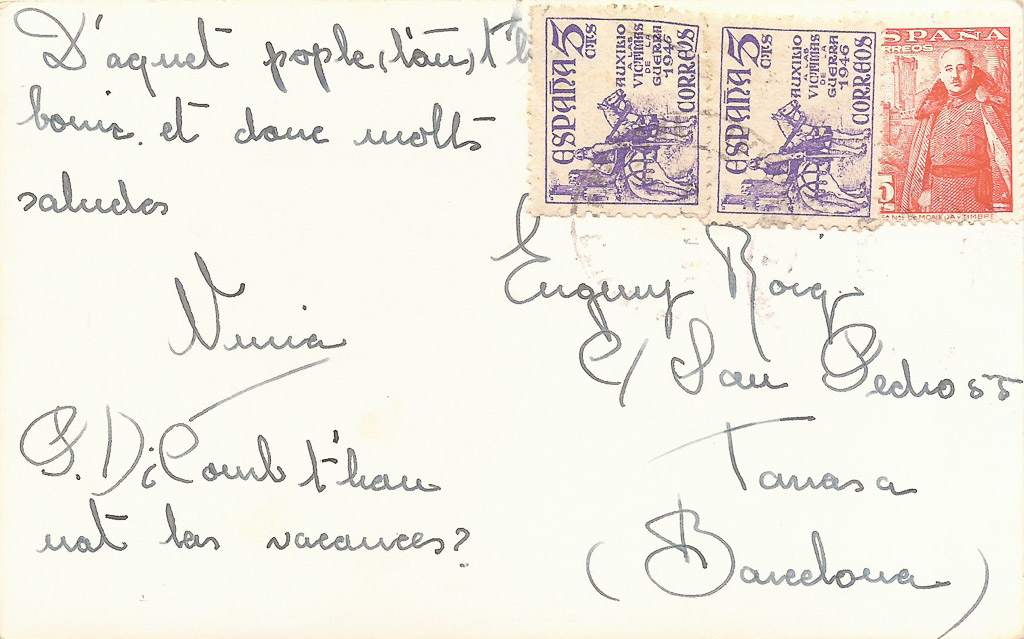 D'aquet pople, (l'au) t'
bonic. et donc molts
saludos
Nuria
P. D. Comb t'han
nat las vacances?
ESPAÑA 5 CTS
AUXILIO
A LAS
VICTIMAS
DE LA
GUERRA
1946
CORREOS
ESPAÑA 5 CTS
AUXILIO
A LAS
VICTIMAS
DE LA
GUERRA
1946
CORREOS
ESPAÑA
RREOS
5
TS
DE MONEDA Y TIMBRE
Eugeny Roig
C/ San Pedro 55
Tarrasa
(Barcelona)